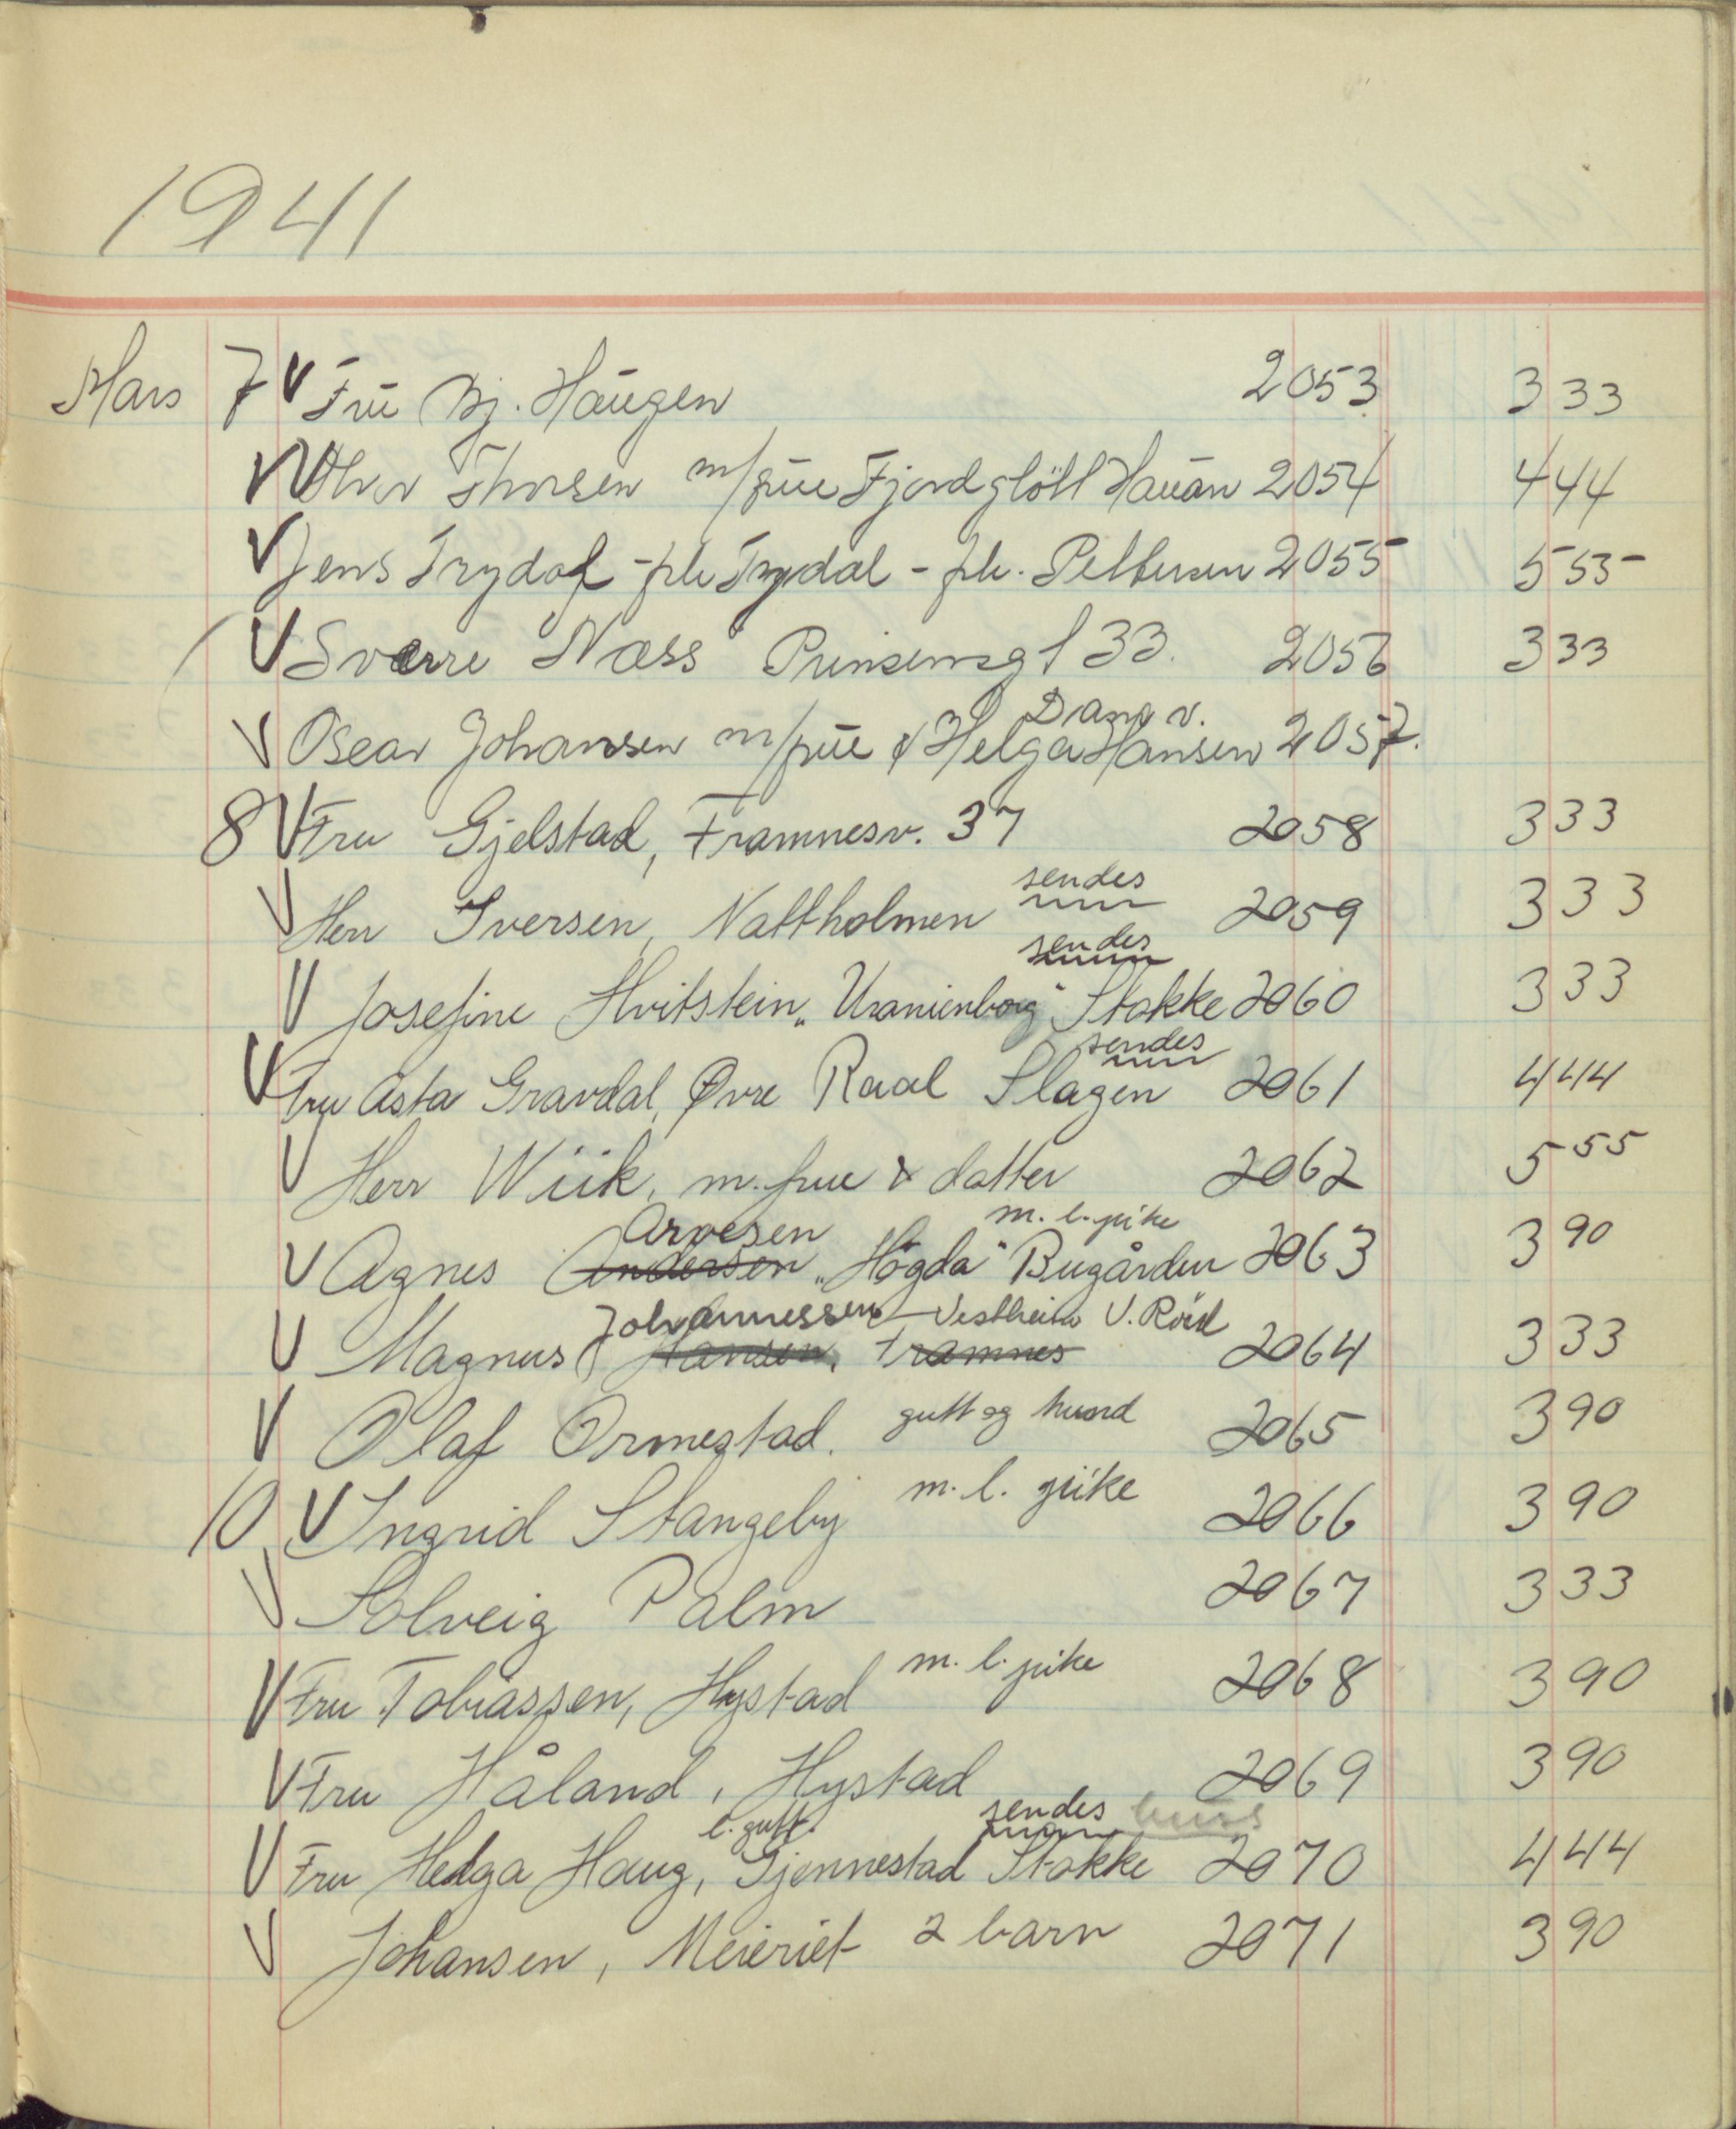 1941
Mars 7 V Fru Bj. Haugen 2053 3 33
V Thorsen m/frue Fjordglött Hauan 2054 4 44
V Jens Trydal - frk Trydal - frk. Pettersen 2055 5 55
V Sverre Næss Prinsensgt 33. 2056 3 33
Dang v.
V Oscar Johansen m/frue & Helga Hansen 2057.
8 V Fru Gjelstad, Framnesv. 37 2058 3 33
sendes
V Herr Iversen, Nattholmen 2059 3 33
sendes
V Josefine Hvitstein „Uranienborg" Stokke 2060 3 33
sendes
V Fru Asta Gravdal, Øvre Raal Slagen 2061 4 44
V Herr Wiik, m. frue & datter 2062 5 55
Arvesen m. l. pike
V Agnes Andersen „Högda" Bugården 2063 3 90
Johannessen Vestheim V. Röd
V Magnus Hansen, Framnes 2064 3 33
V Olaf Ormestad. gutt og hund 2065 3 90
10 V Ingrid Stangeby m. l. pike 2066 3 90
V Solveig Palm 2067 3 33
V Fru Tobiassen, Hystad m. l. pike 2068 3 90
V Fru Håland, Hystad 2069 3 90
l. gutt. sendes buss
V Fru Helga Haug, Gjennestad Stokke 2070 4 44
V Johansen, Meieriet 2 barn 2071 3 90